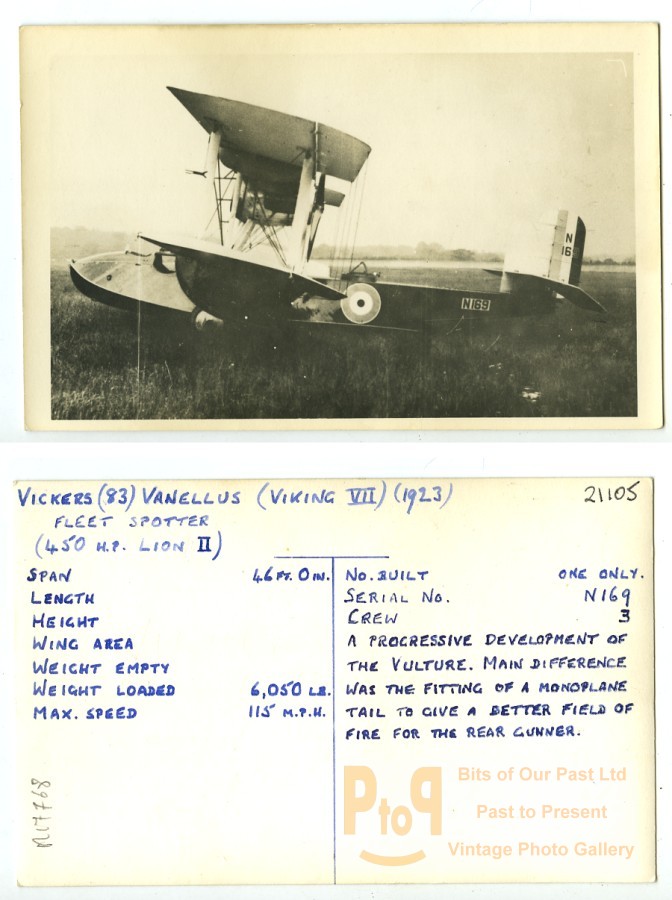 N
16
N169
VICKERS (83) VANELLUS (VIKING VII) (1923)
21105
FLEET SPOTTER
(450 H.P. LION II)
SPAN 46 FT. 0 IN.
LENGTH
HEIGHT
WING AREA
WEIGHT EMPTY
WEIGHT LOADED 6,050 LB.
MAX. SPEED 115 M.P.H.
NO. BUILT ONE ONLY.
SERIAL NO. N169
CREW 3
A PROGRESSIVE DEVELOPMENT OF
THE VULTURE. MAIN DIFFERENCE
WAS THE FITTING OF A MONOPLANE
TAIL TO GIVE A BETTER FIELD OF
FIRE FOR THE REAR GUNNER.
PtoP
Bits of Our Past Ltd
Past to Present
Vintage Photo Gallery